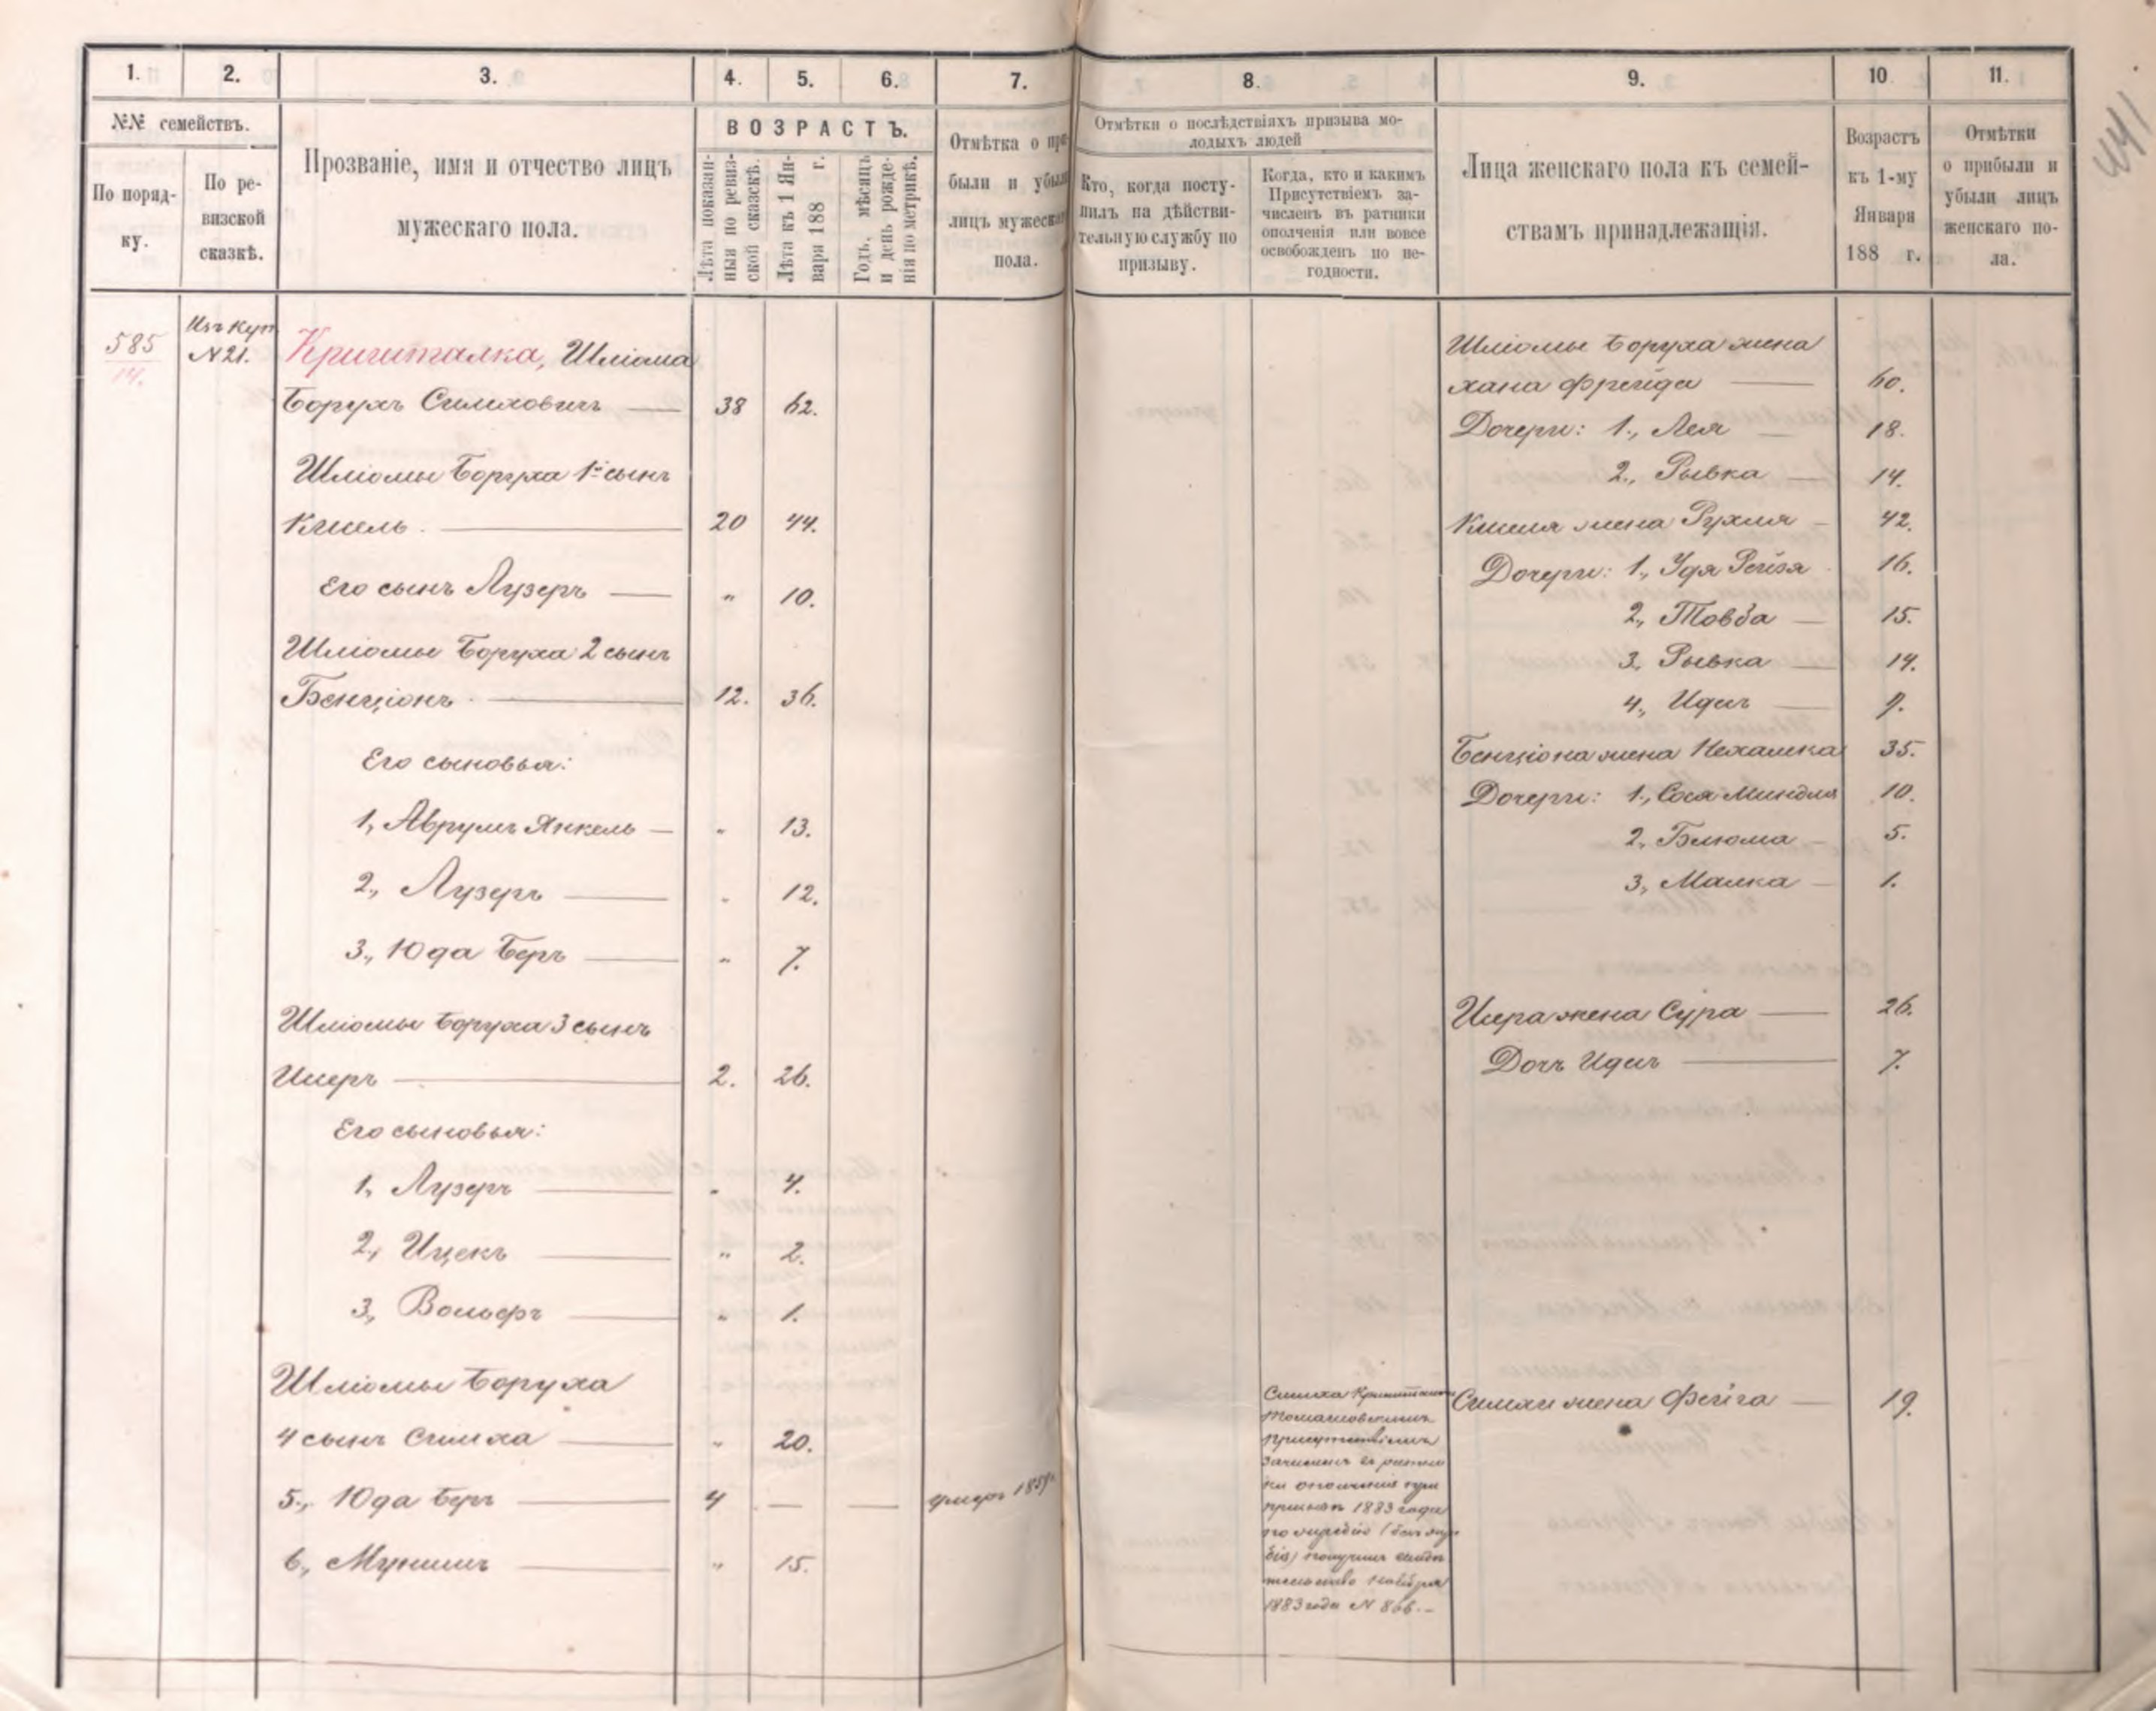 1. 2. 3. 4. 5. 6. 7. 8. 9. 10 11.
№№ семействъ.
По поряд-
ку.
По ре-
визской
сказкѣ.
Прозваніе, имя и отчество лицъ
мужескаго пола.
ВОЗРАСТЪ.
Лѣта показан-
ныя по ревиз-
ской сказкѣ.
Лѣта къ 1 Ян-
варя 188 г.
Годъ, мѣсяцъ
и день рожде-
нія по метрикѣ.
Отмѣтка о при
были и убыли
лицъ мужескаго
пола.
Отмѣтки о послѣдствіяхъ призыва мо-
лодыхъ людей
Кто, когда посту-
пилъ на дѣйстви-
тельную службу по
призыву.
Когда, кто и какимъ
Присутствіемъ за-
численъ въ ратники
ополченія или вовсе
освобожденъ по не-
годности.
Лица женскаго пола къ семей-
ствамъ принадлежащія.
Возрастъ
къ 1-му
Января
188 г.
Отмѣтки
о прибыли и
убыли лицъ
женскаго по-
ла.
585
14.
Изъ куп
N 21.
Кришталка, Шліома
Борухъ Симховичъ — 38 62.
Шліомы Боруха 1й сынъ
Кисель. — 20 44.
Его сынъ Лузеръ — " 10.
Шліомы Боруха 2 сынъ
Бенціонъ — 12. 36.
Его сыновья:
1, Аврумъ Янкель — " 13.
2, Лузеръ — " 12.
3, Юда Беръ — " 7.
Шліомы Боруха 3 сынъ
Ишеръ — 2. 26.
Его сыновья:
1, Лузеръ — " 4.
2, Ицекъ — " 2.
3, Вольфъ — " 1.
Шліомы Боруха
4 сынъ Симха — " 20.
5, Юда Беръ — 4 — — умеръ 1859г.
6, Мунишъ — " 15.
Симха
присутствіемъ
ополченія при
призывѣ 1883 года
1883 года N 866. —
Шліомы Боруха жена
Хана Фрейда — 60.
Дочери: 1, Лея — 18.
2, Рывка — 14.
Киселя жена Рухля — 42.
Дочери: 1, Удя Рейзя 16.
2, Товба — 15.
3, Рывка — 14.
4, Идись — 9.
Бенціона жена Нехамка 35.
Дочери: 1, Сося Миндля 10.
2, Блюма — 5.
3, Малка — 1.
Ишера жена Сура — 26.
Дочь Идись — 7.
Симхи жена Фейга — 19.